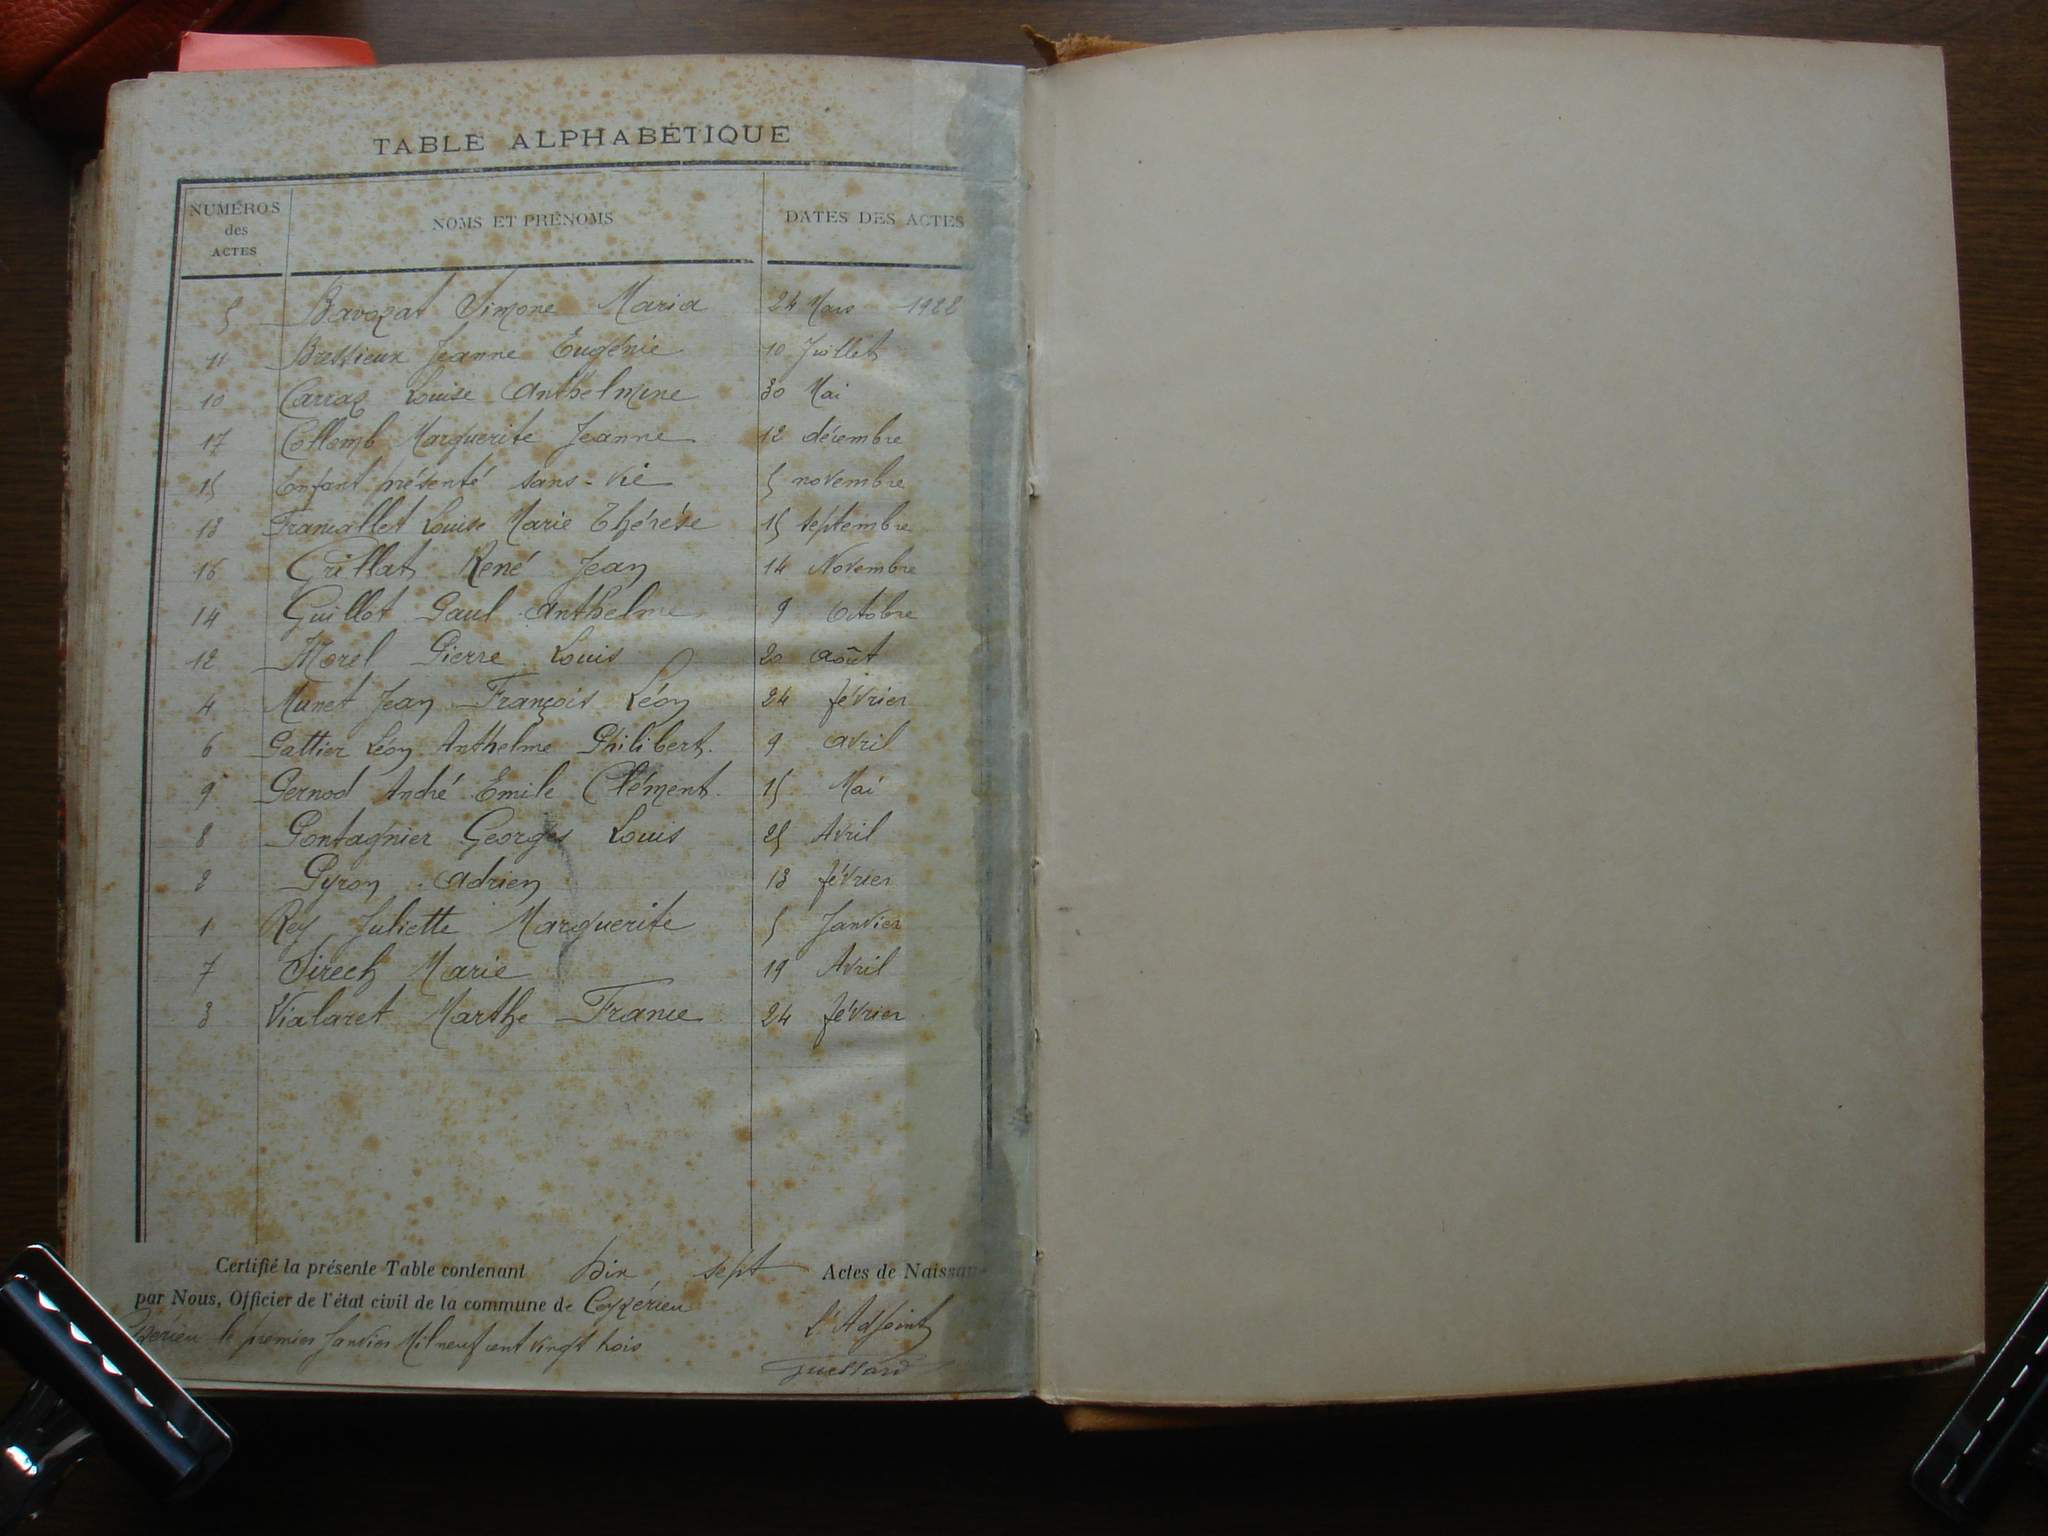 TABLE ALPHABÉTIQUE
NUMÉROS des ACTES NOMS ET PRÉNOMS DATES DES ACTES
5 Bavozat Simone Maria 24 Mars 1922
11 Bressieux Jeanne Eugénie 10 Juillet
10 Carraz Louise Anthelmine 30 Mai
17 Collomb Marguerite Jeanne 12 décembre
15 Enfant présenté sans-vie 5 novembre
13 Francallet Louise Marie Thérèse 15 septembre
16 Grillat René Jean 14 Novembre
14 Guillot Paul Anthelme 9 Octobre
12 Morel Pierre Louis 20 août
4 Munet Jean François Léon 24 février
6 Pattier Léon Anthelme Philibert 9 avril
9 Pernod André Emile Clément 15 Mai
8 Pontagnier Georges Louis 25 Avril
2 Pyron Adrien 13 février
1 Rey Juliette Marguerite 5 Janvier
7 Sirech Marie 19 Avril
3 Vialaret Marthe France 24 février
Certifié la présente Table contenant Dix sept Actes de Naissan
par Nous, Officier de l'état civil de la commune de Ceyzérieu
le premier Janvier Mil neuf cent vingt trois L'Adjoint